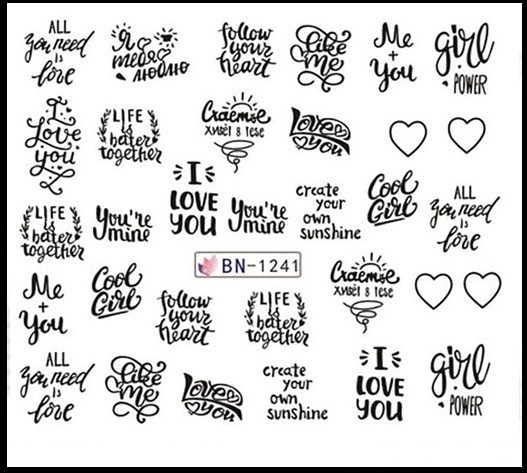 ALL
you need
is
love
Я
тебя
люблю
follow
your
heart
like
me
Me
+
You
girl
POWER
I
Love
you
LIFE
is
bater
together
Счастье
живёт в тебе
Love
you
I
LOVE
YOU
create
your
own
sunshine
Cool
Girl
ALL
you need
is
love
LIFE
is
bater
together
You're
mine
You're
mine
BN-1241
Me
+
You
Cool
Girl
follow
your
heart
LIFE
is
bater
together
Счастье
живёт в тебе
ALL
you need
is
love
like
me
Love
you
create
your
own
sunshine
I
LOVE
YOU
girl
POWER